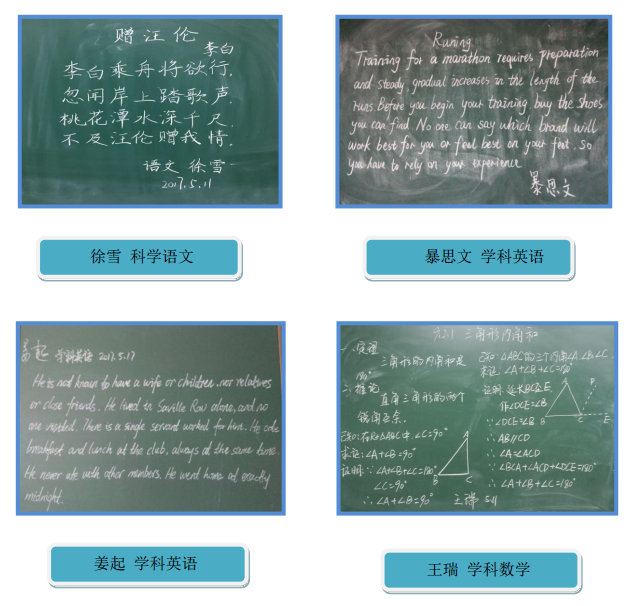 赠汪伦
李白
李白乘舟将欲行.
忽闻岸上踏歌声.
桃花潭水深千尺.
不及汪伦赠我情.
语文 徐雪
2017.5.11
Runing
Training for a marathon requires preparation
and steady, gradual increases in the length of the
runs. Before you begin your training, buy the shoes
you can find. No one can say which brand will
work best for you or feel best on your feet. So
you have to rely on your experience.
暴思文
徐雪 科学语文
暴思文 学科英语
姜起 学科英语 2017.5.17
He is not known to have a wife or children, nor relatives
or close friends. He lived in Saville Row alone, and no
one visited. There is a single servant worked for him. He ate
breakfast and lunch at the club, always at the same time.
He never ate with other members. He went home at exactly
midnight.
三角形内角和
一. 原理
三角形的内角和是
180°
二. 推论
直角三角形的两个
锐角互余.
已知: 在Rt△ABC中, ∠C=90°
求证: ∠A+∠B=90°
证明: ∵∠A+∠B+∠C=180°
∠C=90°
∴∠A+∠B=90°
A
B
C
已知: △ABC的三个内角∠A.∠B.∠C
求证: ∠A+∠B+∠C=180°
证明: 延长BC至E
作∠DCE=∠B
∵∠DCE=∠B
∴AB//CD
∴∠A=∠ACD
∵∠BCA+∠ACD+∠DCE=180°
∴∠A+∠B+∠C=180°
A
D
B
C
E
王瑞 5.11
姜起 学科英语
王瑞 学科数学